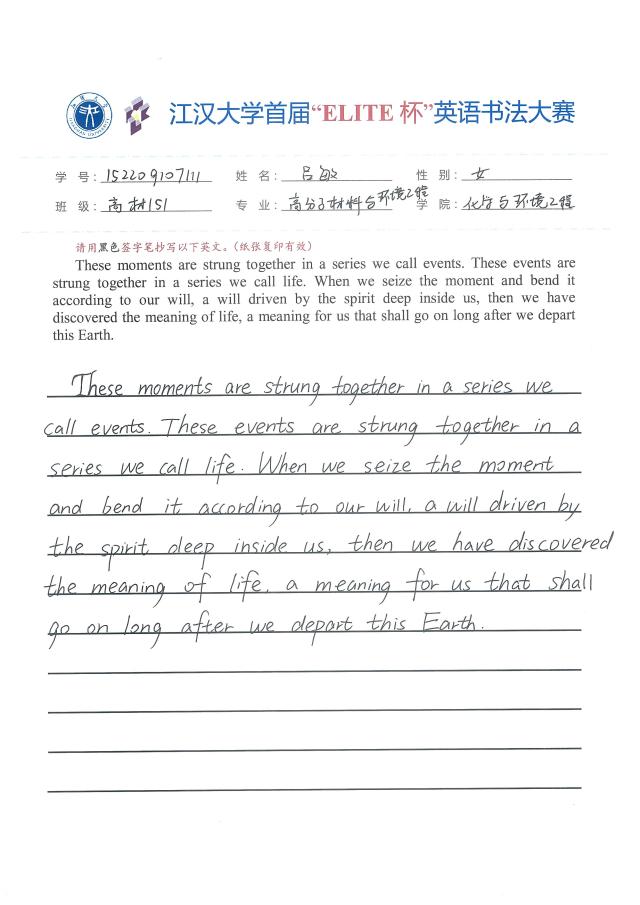 江汉大学首届“ELITE 杯”英语书法大赛
学 号: 152209107111 姓 名: 吕敏 性 别: 女
班 级: 高材151 专 业: 高分子材料与环境工程 学 院: 化学与环境工程
请用黑色签字笔抄写以下英文。(纸张复印有效)
These moments are strung together in a series we call events. These events are
strung together in a series we call life. When we seize the moment and bend it
according to our will, a will driven by the spirit deep inside us, then we have
discovered the meaning of life, a meaning for us that shall go on long after we depart
this Earth.
These moments are strung together in a series we
call events. These events are strung together in a
series we call life. When we seize the moment
and bend it according to our will, a will driven by
the spirit deep inside us, then we have discovered
the meaning of life, a meaning for us that shall
go on long after we depart this Earth.